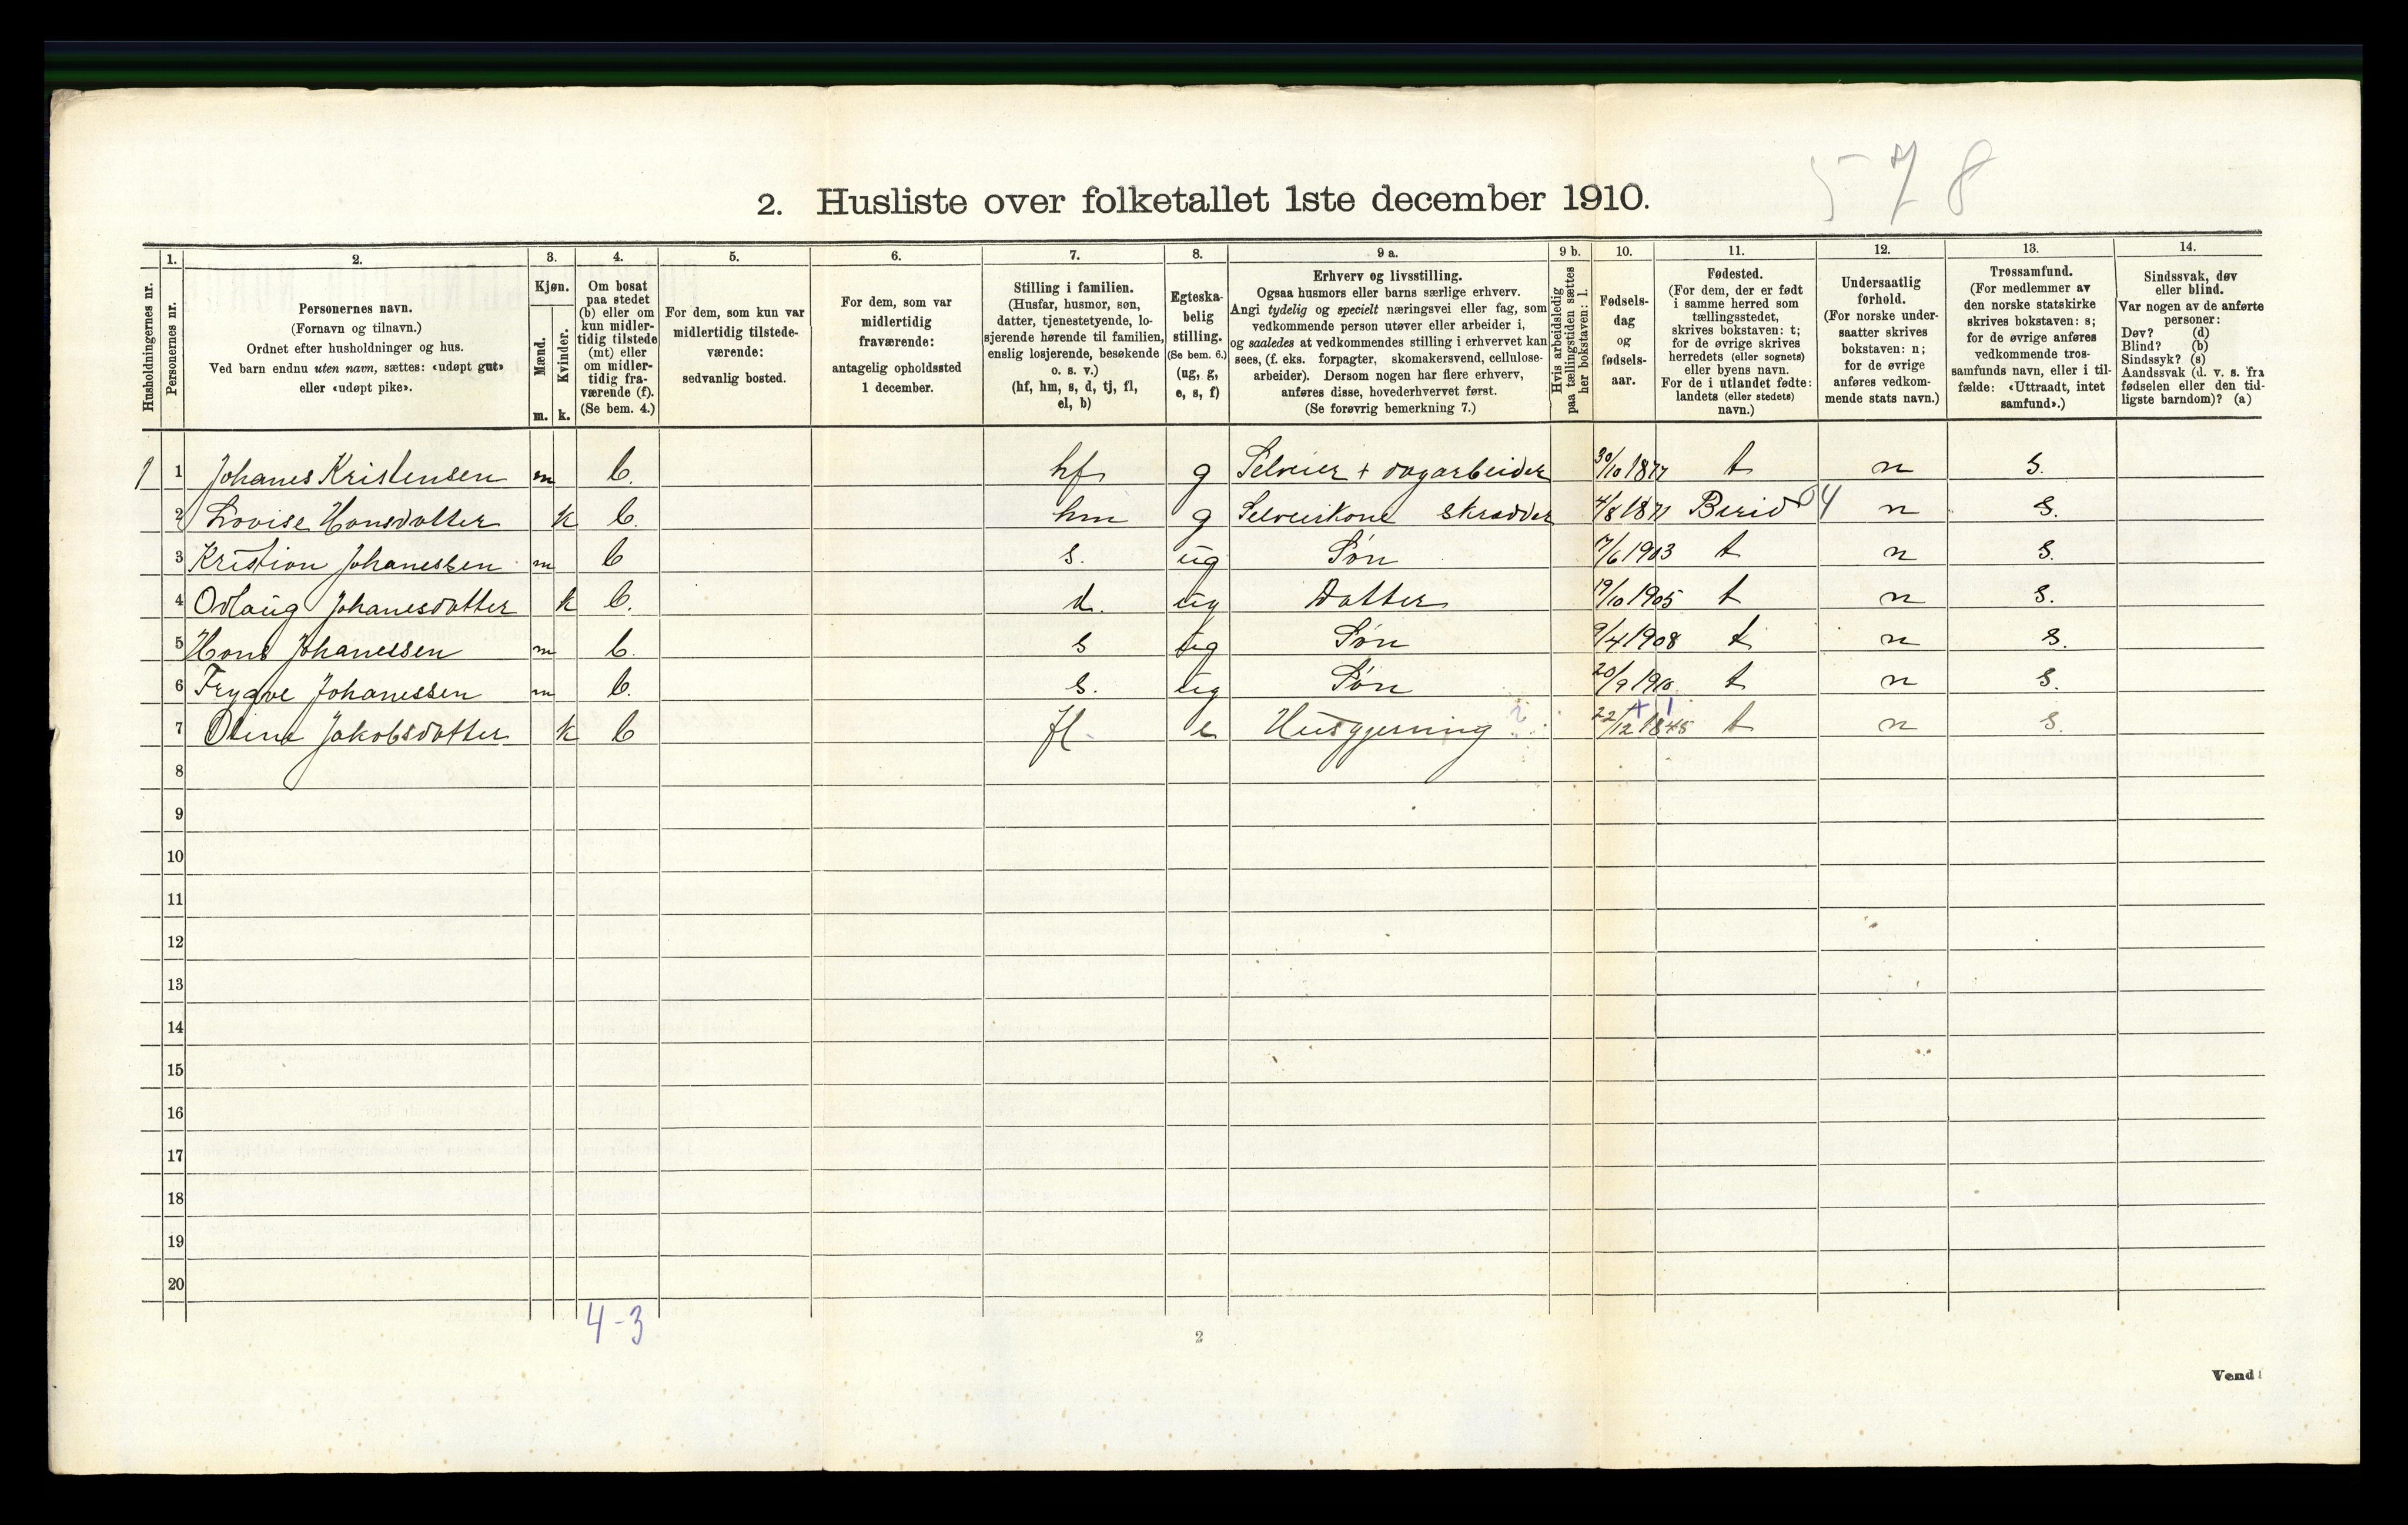 578
2. Husliste over folketallet 1ste december 1910.
Husholdningernes nr.
1.
Personernes nr.
2.
Personernes navn.
(Fornavn og tilnavn.)
Ordnet efter husholdninger og hus.
Ved barn endnu uten navn, sættes: «udøpt gut»
eller «udøpt pike».
3.
Kjøn.
Mænd.
Kvinder.
m. k.
4.
Om bosat
paa stedet
(b) eller om
kun midler-
tidig tilstede
(mt) eller
om midler-
tidig fra-
værende (f).
(Se bem. 4.)
5.
For dem, som kun var
midlertidig tilstede-
værende:
sedvanlig bosted.
6.
For dem, som var
midlertidig
fraværende:
antagelig opholdssted
1 december.
7.
Stilling i familien.
(Husfar, husmor, søn,
datter, tjenestetyende, lo-
sjerende hørende til familien,
enslig losjerende, besøkende
o. s. v.)
(hf, hm, s, d, tj, fl,
el, b)
8.
Egteska-
belig
stilling.
(Se bem. 6.)
(ug, g,
e, s, f)
9 a.
Erhverv og livsstilling.
Ogsaa husmors eller barns særlige erhverv.
Angi tydelig og specielt næringsvei eller fag, som
vedkommende person utøver eller arbeider i,
og saaledes at vedkommendes stilling i erhvervet kan
sees, (f. eks. forpagter, skomakersvend, cellulose-
arbeider). Dersom nogen har flere erhverv,
anføres disse, hovederhvervet først.
(Se forøvrig bemerkning 7.)
9 b.
Hvis arbeidsledig
paa tællingstiden sættes
her bokstaven: l.
10.
Fødsels-
dag
og
fødsels-
aar.
11.
Fødested.
(For dem, der er født
i samme herred som
tællingsstedet,
skrives bokstaven: t;
for de øvrige skrives
herredets (eller sognets)
eller byens navn.
For de i utlandet fødte:
landets (eller stedets)
navn.)
12.
Undersaatlig
forhold.
(For norske under-
saatter skrives
bokstaven: n;
for de øvrige
anføres vedkom-
mende stats navn.)
13.
Trossamfund.
(For medlemmer av
den norske statskirke
skrives bokstaven: s;
for de øvrige anføres
vedkommende tros-
samfunds navn, eller i til-
fælde: «Uttraadt, intet
samfund».)
14.
Sindssvak, døv
eller blind.
Var nogen av de anførte
personer:
Døv? (d)
Blind? (b)
Sindssyk? (s)
Aandssvak (d. v. s. fra
fødselen eller den tid-
ligste barndom)? (a)
1 1 Johanes Kristensen m b. hf g Selveier + dagarbeider 30/10 1877 t n s.
2 Lovise Hansdatter k b. hm g Selveierkone skrædder 4/8 1871 Berid 04 n s.
3 Kristian Johanessen m b s. ug Søn 7/6 1903 t n s.
4 Odlaug Johanesdatter k b. d. ug Datter 19/10 1905 t n s.
5 Hans Johanessen m b. s ug Søn 9/4 1908 t n s.
6 Trygve Johanessen m b. s. ug Søn 20/9 1910 t n s.
7 Oline Jakobsdatter k b fl. e Husgjerning 22/12 1845 t n s.
8
9
10
11
12
13
14
15
16
17
18
19
20
4-3
2
Vend!